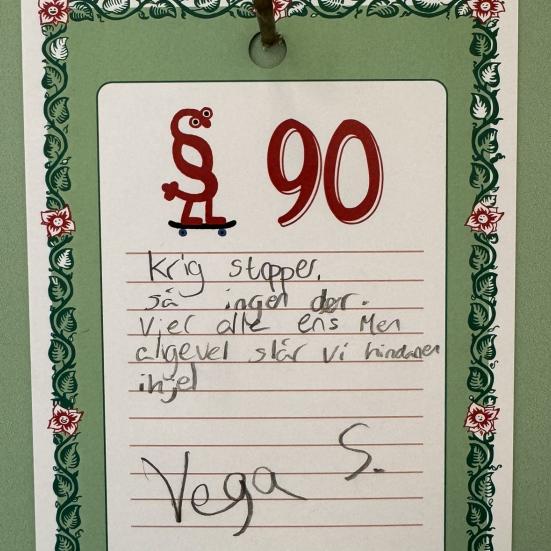 § 90
Krig stopper,
så ingen dør.
Vi er alle ens Men
aligevel slår vi hindanen
ihjel
Vega S.